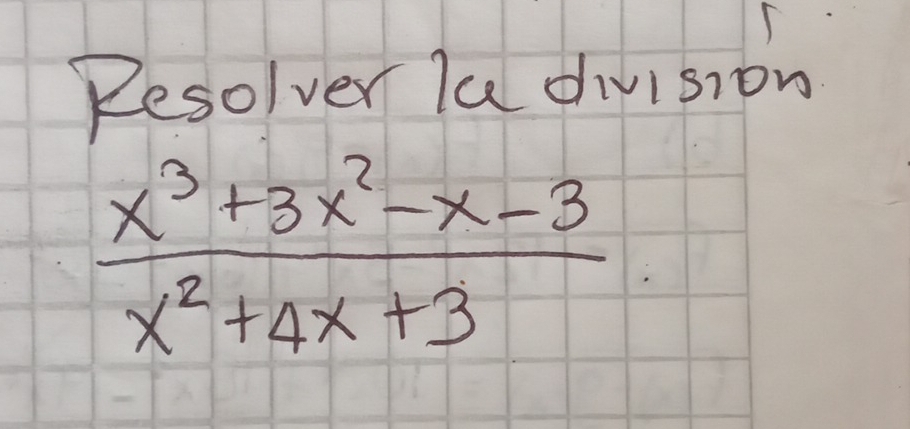 Resolver la división
x³ + 3x² - x - 3
x² + 4x + 3